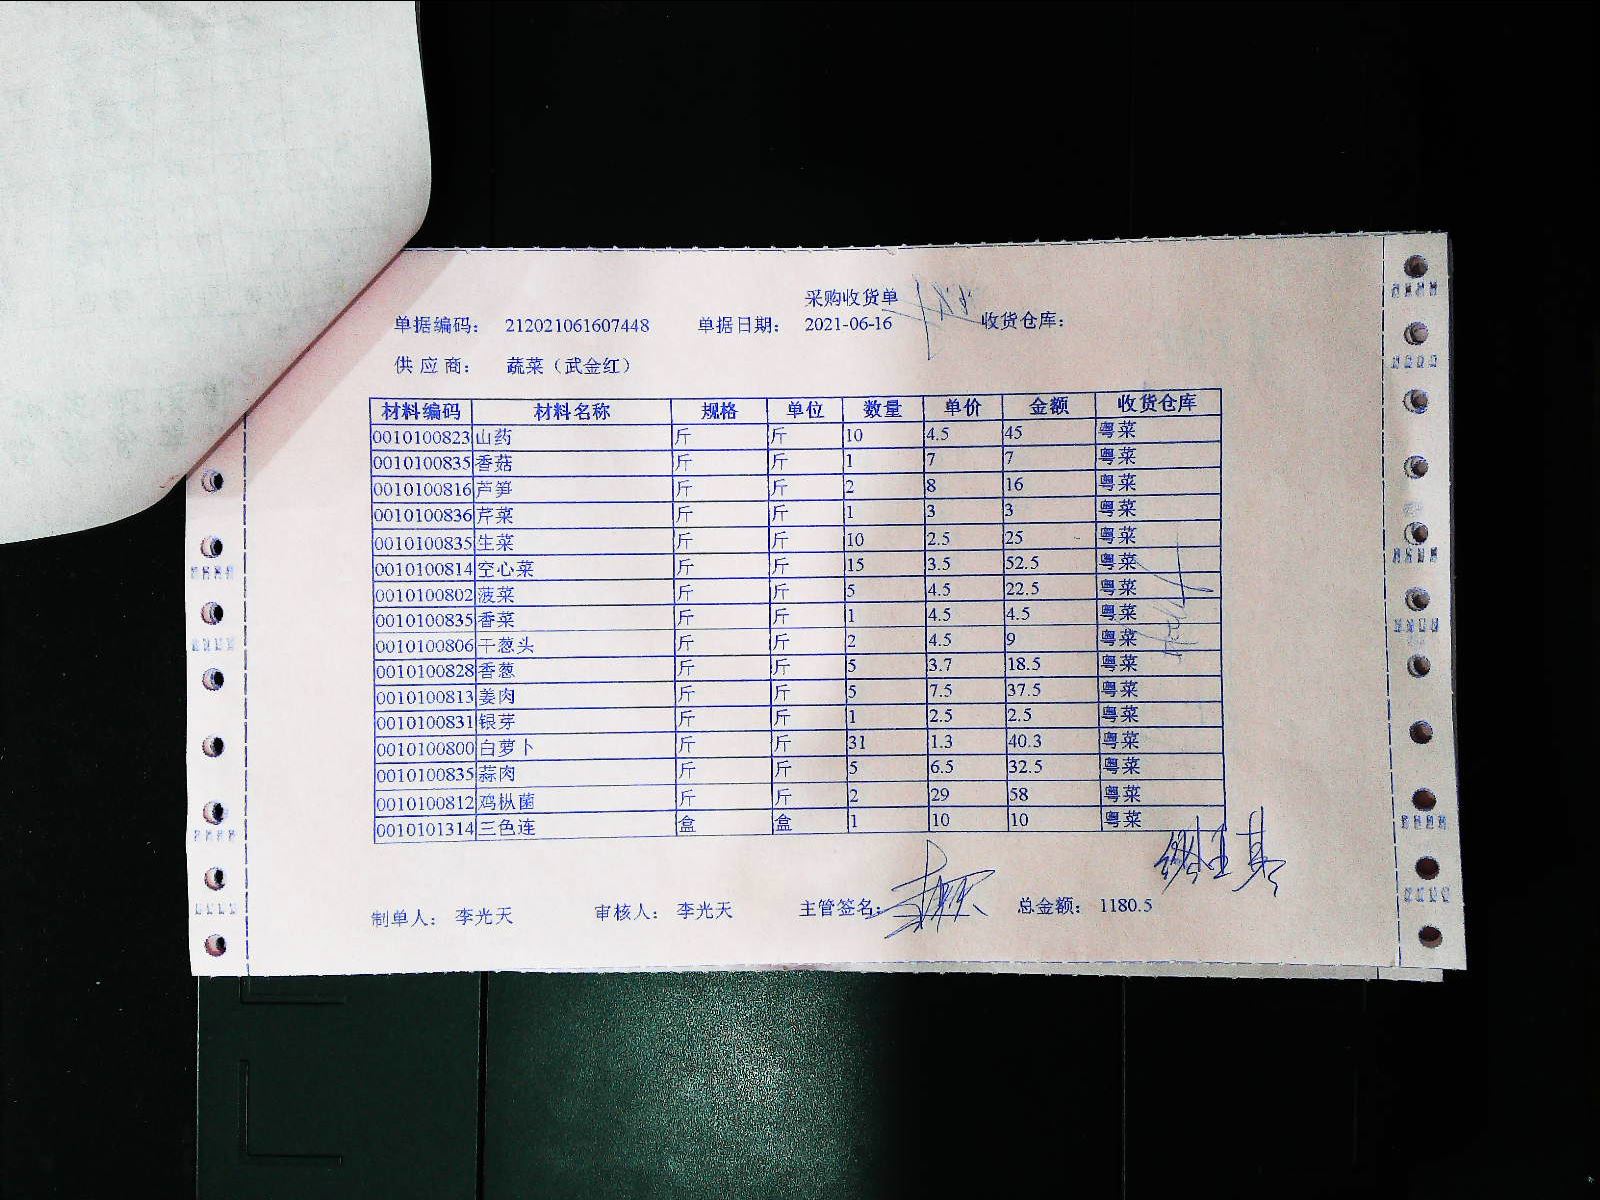 采购收货单
单据编码： 212021061607448 单据日期： 2021-06-16 收货仓库：
供 应 商： 蔬菜（武金红）
材料编码 材料名称 规格 单位 数量 单价 金额 收货仓库
0010100823 山药 斤 斤 10 4.5 45 粤菜
0010100835 香菇 斤 斤 1 7 7 粤菜
0010100816 芦笋 斤 斤 2 8 16 粤菜
0010100836 芹菜 斤 斤 1 3 3 粤菜
0010100835 生菜 斤 斤 10 2.5 25 粤菜
0010100814 空心菜 斤 斤 15 3.5 52.5 粤菜
0010100802 菠菜 斤 斤 5 4.5 22.5 粤菜
0010100835 香菜 斤 斤 1 4.5 4.5 粤菜
0010100806 干葱头 斤 斤 2 4.5 9 粤菜
0010100828 香葱 斤 斤 5 3.7 18.5 粤菜
0010100813 姜肉 斤 斤 5 7.5 37.5 粤菜
0010100831 银芽 斤 斤 1 2.5 2.5 粤菜
0010100800 白萝卜 斤 斤 31 1.3 40.3 粤菜
0010100835 蒜肉 斤 斤 5 6.5 32.5 粤菜
0010100812 鸡枞菌 斤 斤 2 29 58 粤菜
0010101314 三色连 盒 盒 1 10 10 粤菜
制单人： 李光天 审核人： 李光天 主管签名： 总金额： 1180.5